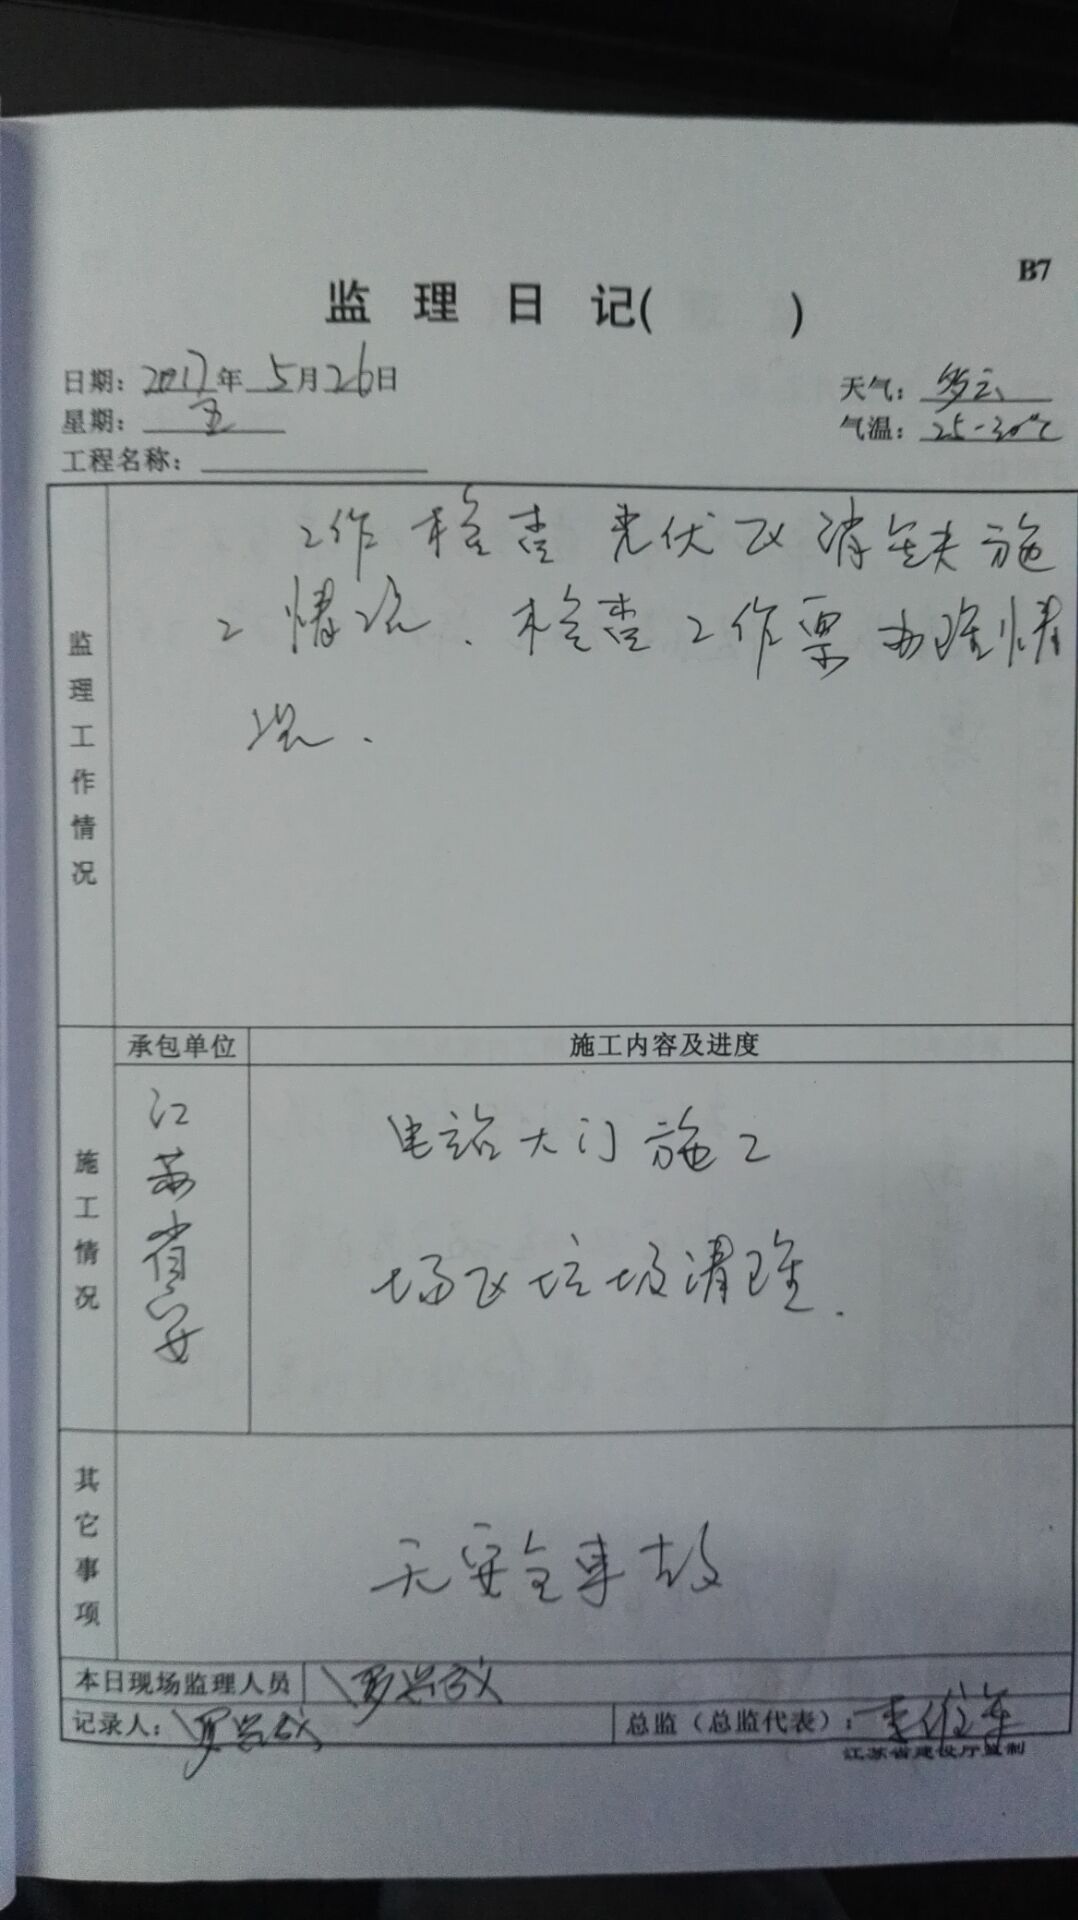 B7
监 理 日 记(    )
日期：2017年 5月26日
天气：多云
星期：五
气温：25-30℃
工程名称：
监理工作情况
工作 检查 光伏区 消缺施
工情况、检查工作票办理情
况.
承包单位
施工内容及进度
施工情况
江苏省安
电站大门施工
场区垃圾清理.
其它事项
无安全事故
本日现场监理人员
记录人：
总监（总监代表）：
江苏省建设厅监制